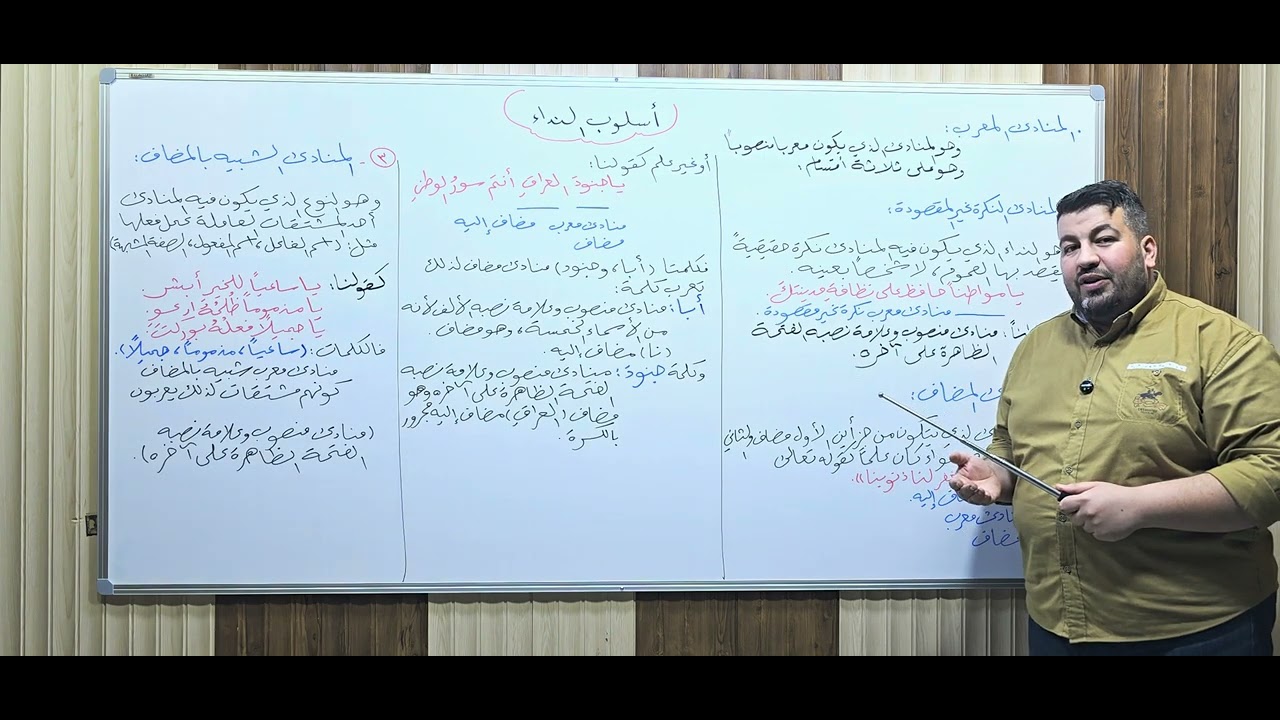 أسلوب النداء
المنادى المعرب:
وهو المنادى الذي يكون معربا منصوباً
وهو على ثلاثة أقسام:
المنادى النكرة غير المقصودة:
هو النداء الذي يكون فيه المنادى نكرة حقيقيةً
يقصد بها العموم، لا شخصاً بعينه.
يا مواطناً حافظ على نظافة مدينتك.
منادى معرب نكرة غير مقصودة
منادى منصوب وعلامة نصبه الفتحة
الظاهرة على آخره.
المضاف:
الذي يتكون من جزأين الأول مضاف والثاني
كان علماً كقوله تعالى
لنا ذنوبنا».
إليه
معرب
مضاف
أو غير علم كقولنا:
يا جنودَ العراقِ أنتم سورُ الوطنِ
منادى معرب مضاف إليه
مضاف
فكلمتا (أبا، وجنود) منادى مضاف لذلك
يعرب كلمة:
أبا: منادى منصوب وعلامة نصبه الألف لأنه
من الأسماء الخمسة، وهو مضاف.
(نا) مضاف إليه.
وكلمة جنودَ: منادى منصوب وعلامة نصبه
الفتحة الظاهرة على آخره وهو
مضاف (العراق) مضاف إليه مجرور
بالكسرة.
٣- المنادى الشبيه بالمضاف:
وهو النوع الذي يكون فيه المنادى
أحد المشتقات العاملة عمل فعلها
مثل: (اسم الفاعل، اسم المفعول، الصفة المشبهة)
كقولنا: يا ساعياً للخير أبشر.
يا مذموماً ظلمُهُ ارعوِ.
يا جميلاً فعلُهُ بوركتَ.
فالكلمات: (ساعياً، مذموماً، جميلاً).
منادى معرب شبيه بالمضاف
كونهم مشتقات لذلك يعربون
(منادى منصوب وعلامة نصبه
الفتحة الظاهرة على آخره).